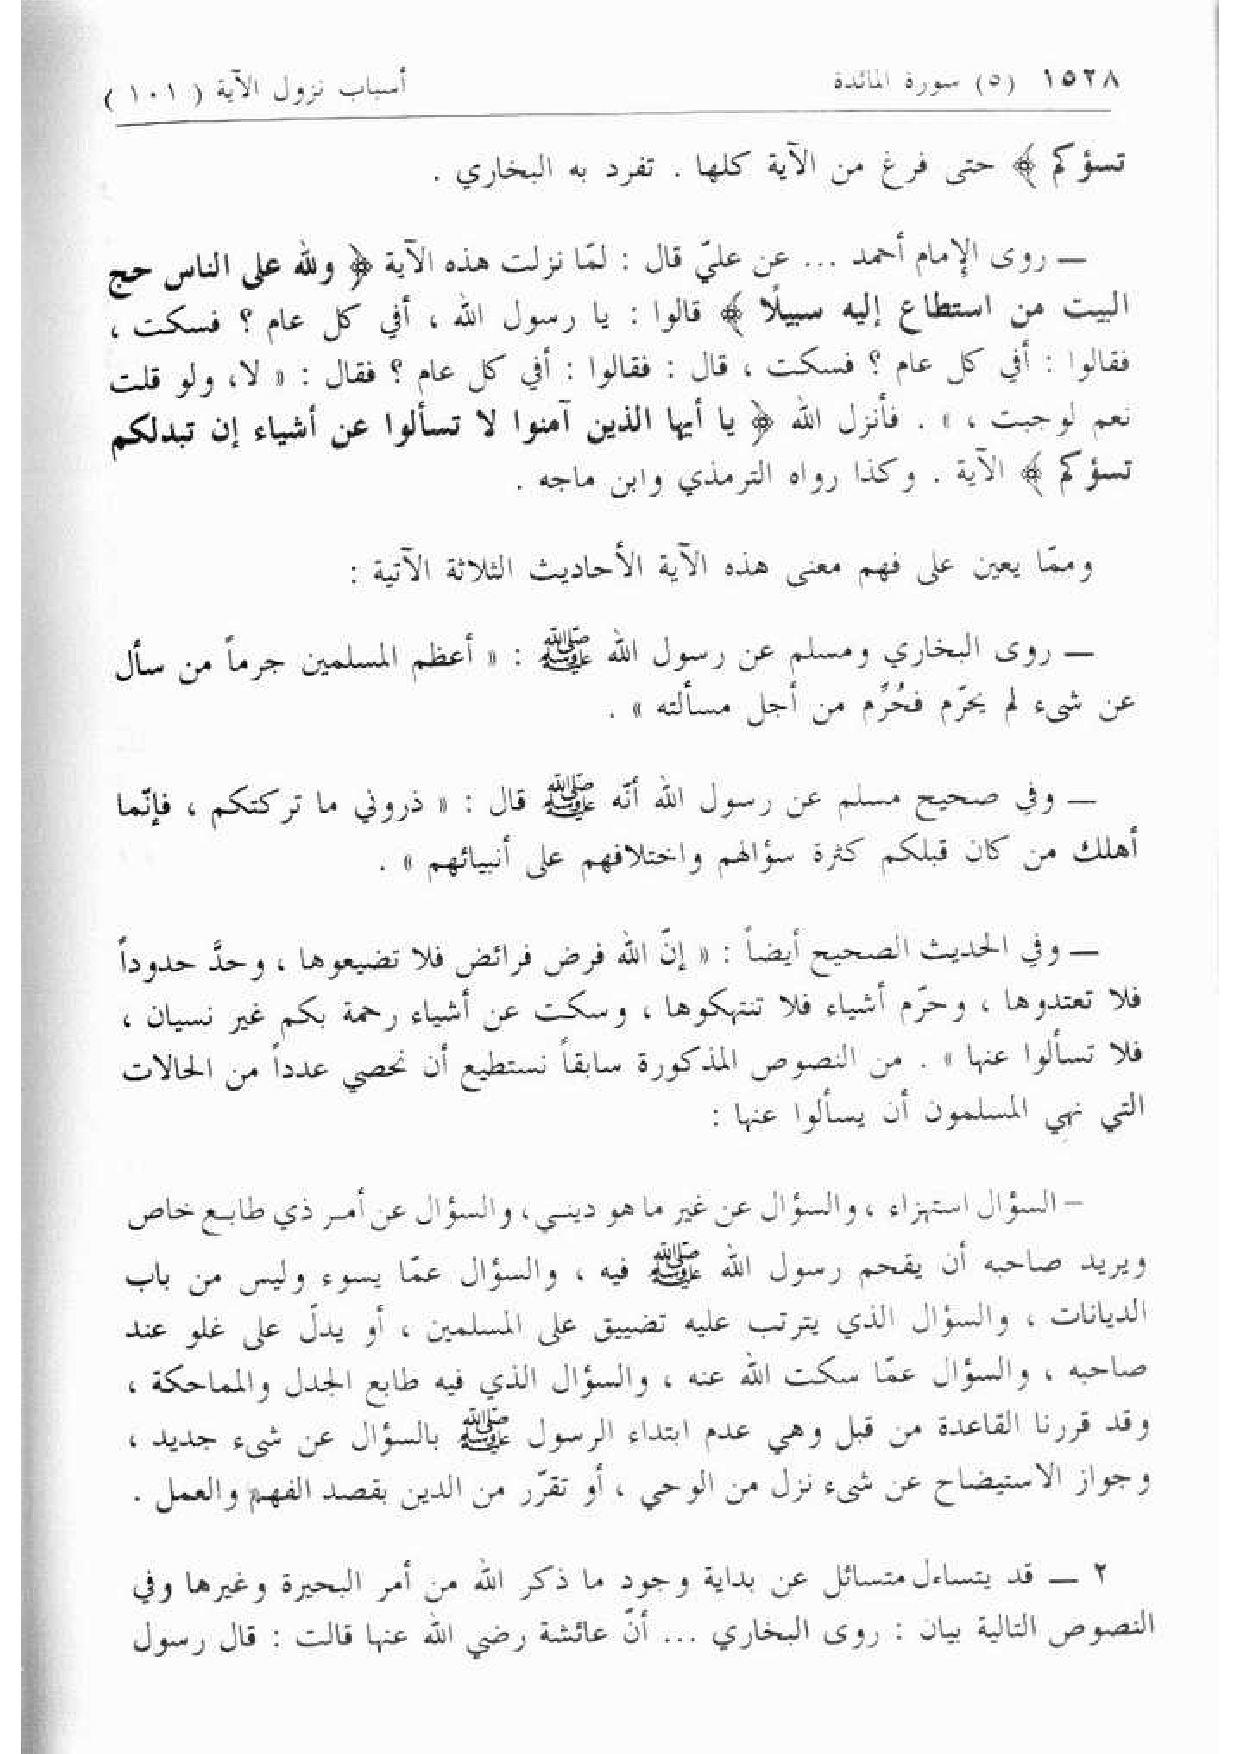 ١٥٢٨ (٥) سورة المائدة أسباب نزول الآية (١٠١)
تسؤكم ﴾ حتى فرغ من الآية كلها . تفرد به البخاري .
ـ روى الإمام أحمد ... عن عليّ قال : لمّا نزلت هذه الآية ﴿ ولله على الناس حج
البيت من استطاع إليه سبيلًا ﴾ قالوا : يا رسول الله ، أفي كل عام ؟ فسكت ،
فقالوا : أفي كل عام ؟ فسكت ، قال : فقالوا : أفي كل عام ؟ فقال : « لا ، ولو قلت
نعم لوجبت ، » . فأنزل الله ﴿ يا أيها الذين آمنوا لا تسألوا عن أشياء إن تبدلكم
تسؤكم ﴾ الآية . وكذا رواه الترمذي وابن ماجه .
وممّا يعين على فهم معنى هذه الآية الأحاديث الثلاثة الآتية :
ـ روى البخاري ومسلم عن رسول الله ﷺ : « أعظم المسلمين جرماً من سأل
عن شىء لم يحرّم فحُرِّم من أجل مسألته » .
ـ وفي صحيح مسلم عن رسول الله أنّه ﷺ قال : « ذروني ما تركتكم ، فإنّما
أهلك من كان قبلكم كثرة سؤالهم واختلافهم على أنبيائهم » .
ـ وفي الحديث الصحيح أيضاً : « إنّ الله فرض فرائض فلا تضيعوها ، وحدَّ حدوداً
فلا تعتدوها ، وحرّم أشياء فلا تنتهكوها ، وسكت عن أشياء رحمة بكم غير نسيان ،
فلا تسألوا عنها » . من النصوص المذكورة سابقاً نستطيع أن نحصي عدداً من الحالات
التي نهي المسلمون أن يسألوا عنها :
- السؤال استهزاء ، والسؤال عن غير ما هو ديني ، والسؤال عن أمر ذي طابع خاص
ويريد صاحبه أن يقحم رسول الله ﷺ فيه ، والسؤال عمّا يسوء وليس من باب
الديانات ، والسؤال الذي يترتب عليه تضييق على المسلمين ، أو يدلّ على غلو عند
صاحبه ، والسؤال عمّا سكت الله عنه ، والسؤال الذي فيه طابع الجدل والمماحكة ،
وقد قررنا القاعدة من قبل وهي عدم ابتداء الرسول ﷺ بالسؤال عن شىء جديد ،
وجواز الاستيضاح عن شىء نزل من الوحي ، أو تقرّر من الدين بقصد الفهم والعمل .
٢ ـ قد يتساءل متسائل عن بداية وجود ما ذكر الله من أمر البحيرة وغيرها وفي
النصوص التالية بيان : روى البخاري ... أنّ عائشة رضي الله عنها قالت : قال رسول